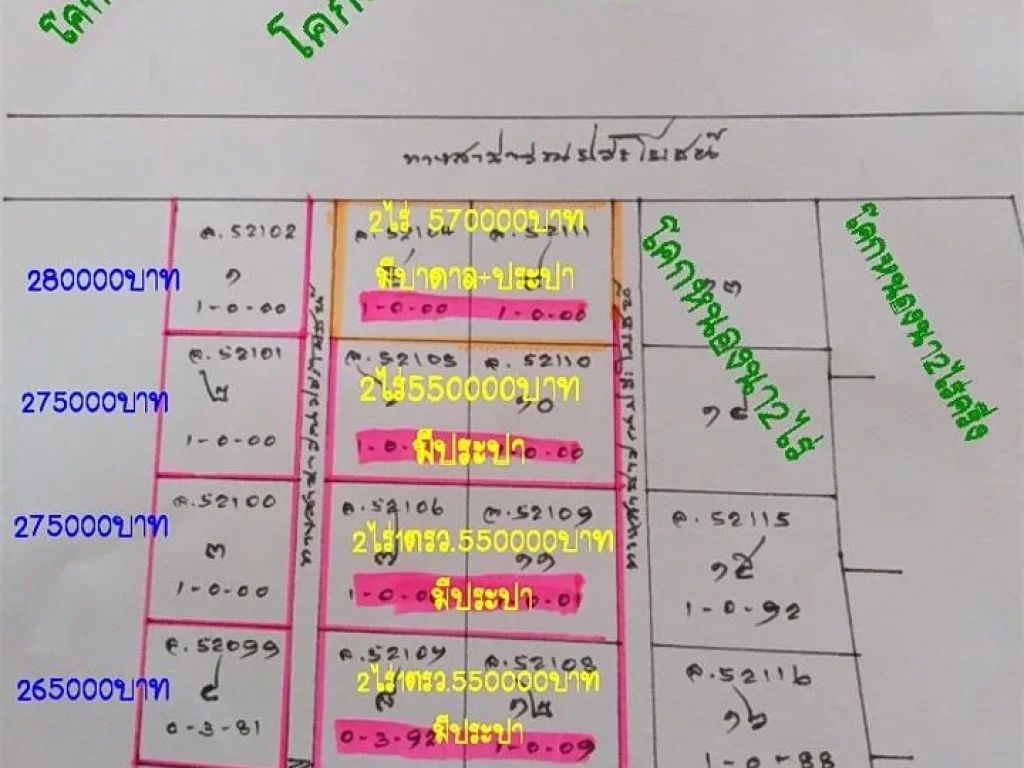 โคก
โคก
ทางสาธารณประโยชน์
ฉ.52102
๑
1-0-00
280000บาท
2ไร่ 570000บาท
ฉ.52111
มีบาดาล+ประปา
1-0-00
1-0-00
๑๓
โคกหนองนา2ไร่
โคกหนองนา2ไร่ครึ่ง
ฉ.52101
๒
1-0-00
275000บาท
ฉ.52105
ฉ.52110
2ไร่550000บาท
๑๐
มีประปา
๑๔
ทางสาธารณประโยชน์
ทางสาธารณประโยชน์
ฉ.52100
๓
1-0-00
275000บาท
ฉ.52106
ฉ.52109
2ไร่1ตรว.550000บาท
๑๑
มีประปา
ฉ.52115
๑๕
1-0-92
ฉ.52099
๔
0-3-81
265000บาท
ฉ.52107
ฉ.52108
2ไร่1ตรว.550000บาท
๑๒
มีประปา
0-3-92
1-0-09
ฉ.52116
๑๖
1-0-88